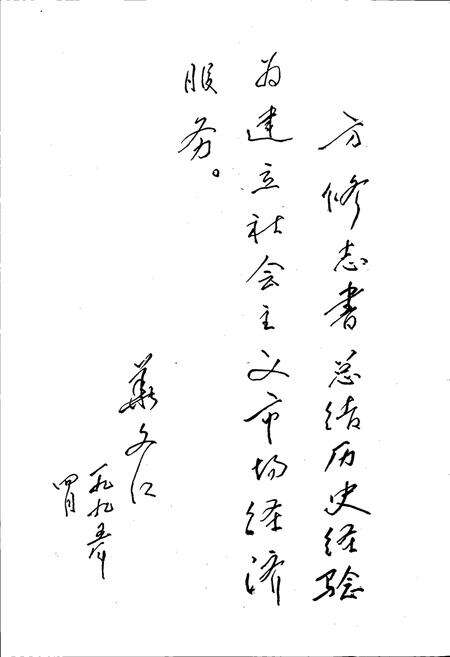 方修志书总结历史经验
为建立社会主义市场经济
服务。
文江
一九九五年
四月